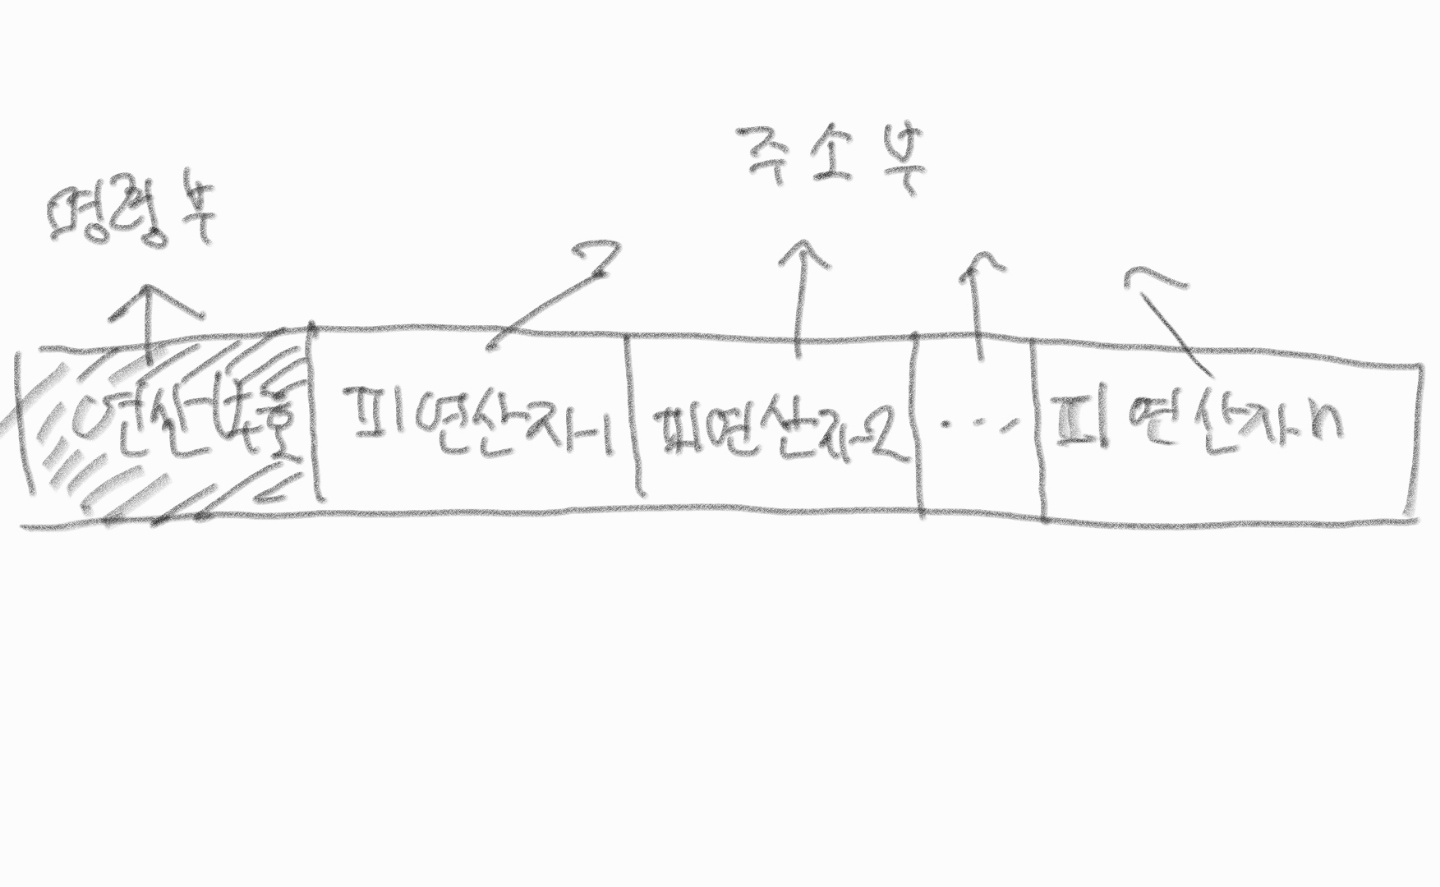 주소부
명령부
연산부호 피연산자-1 피연산자-2 ... 피연산자-n